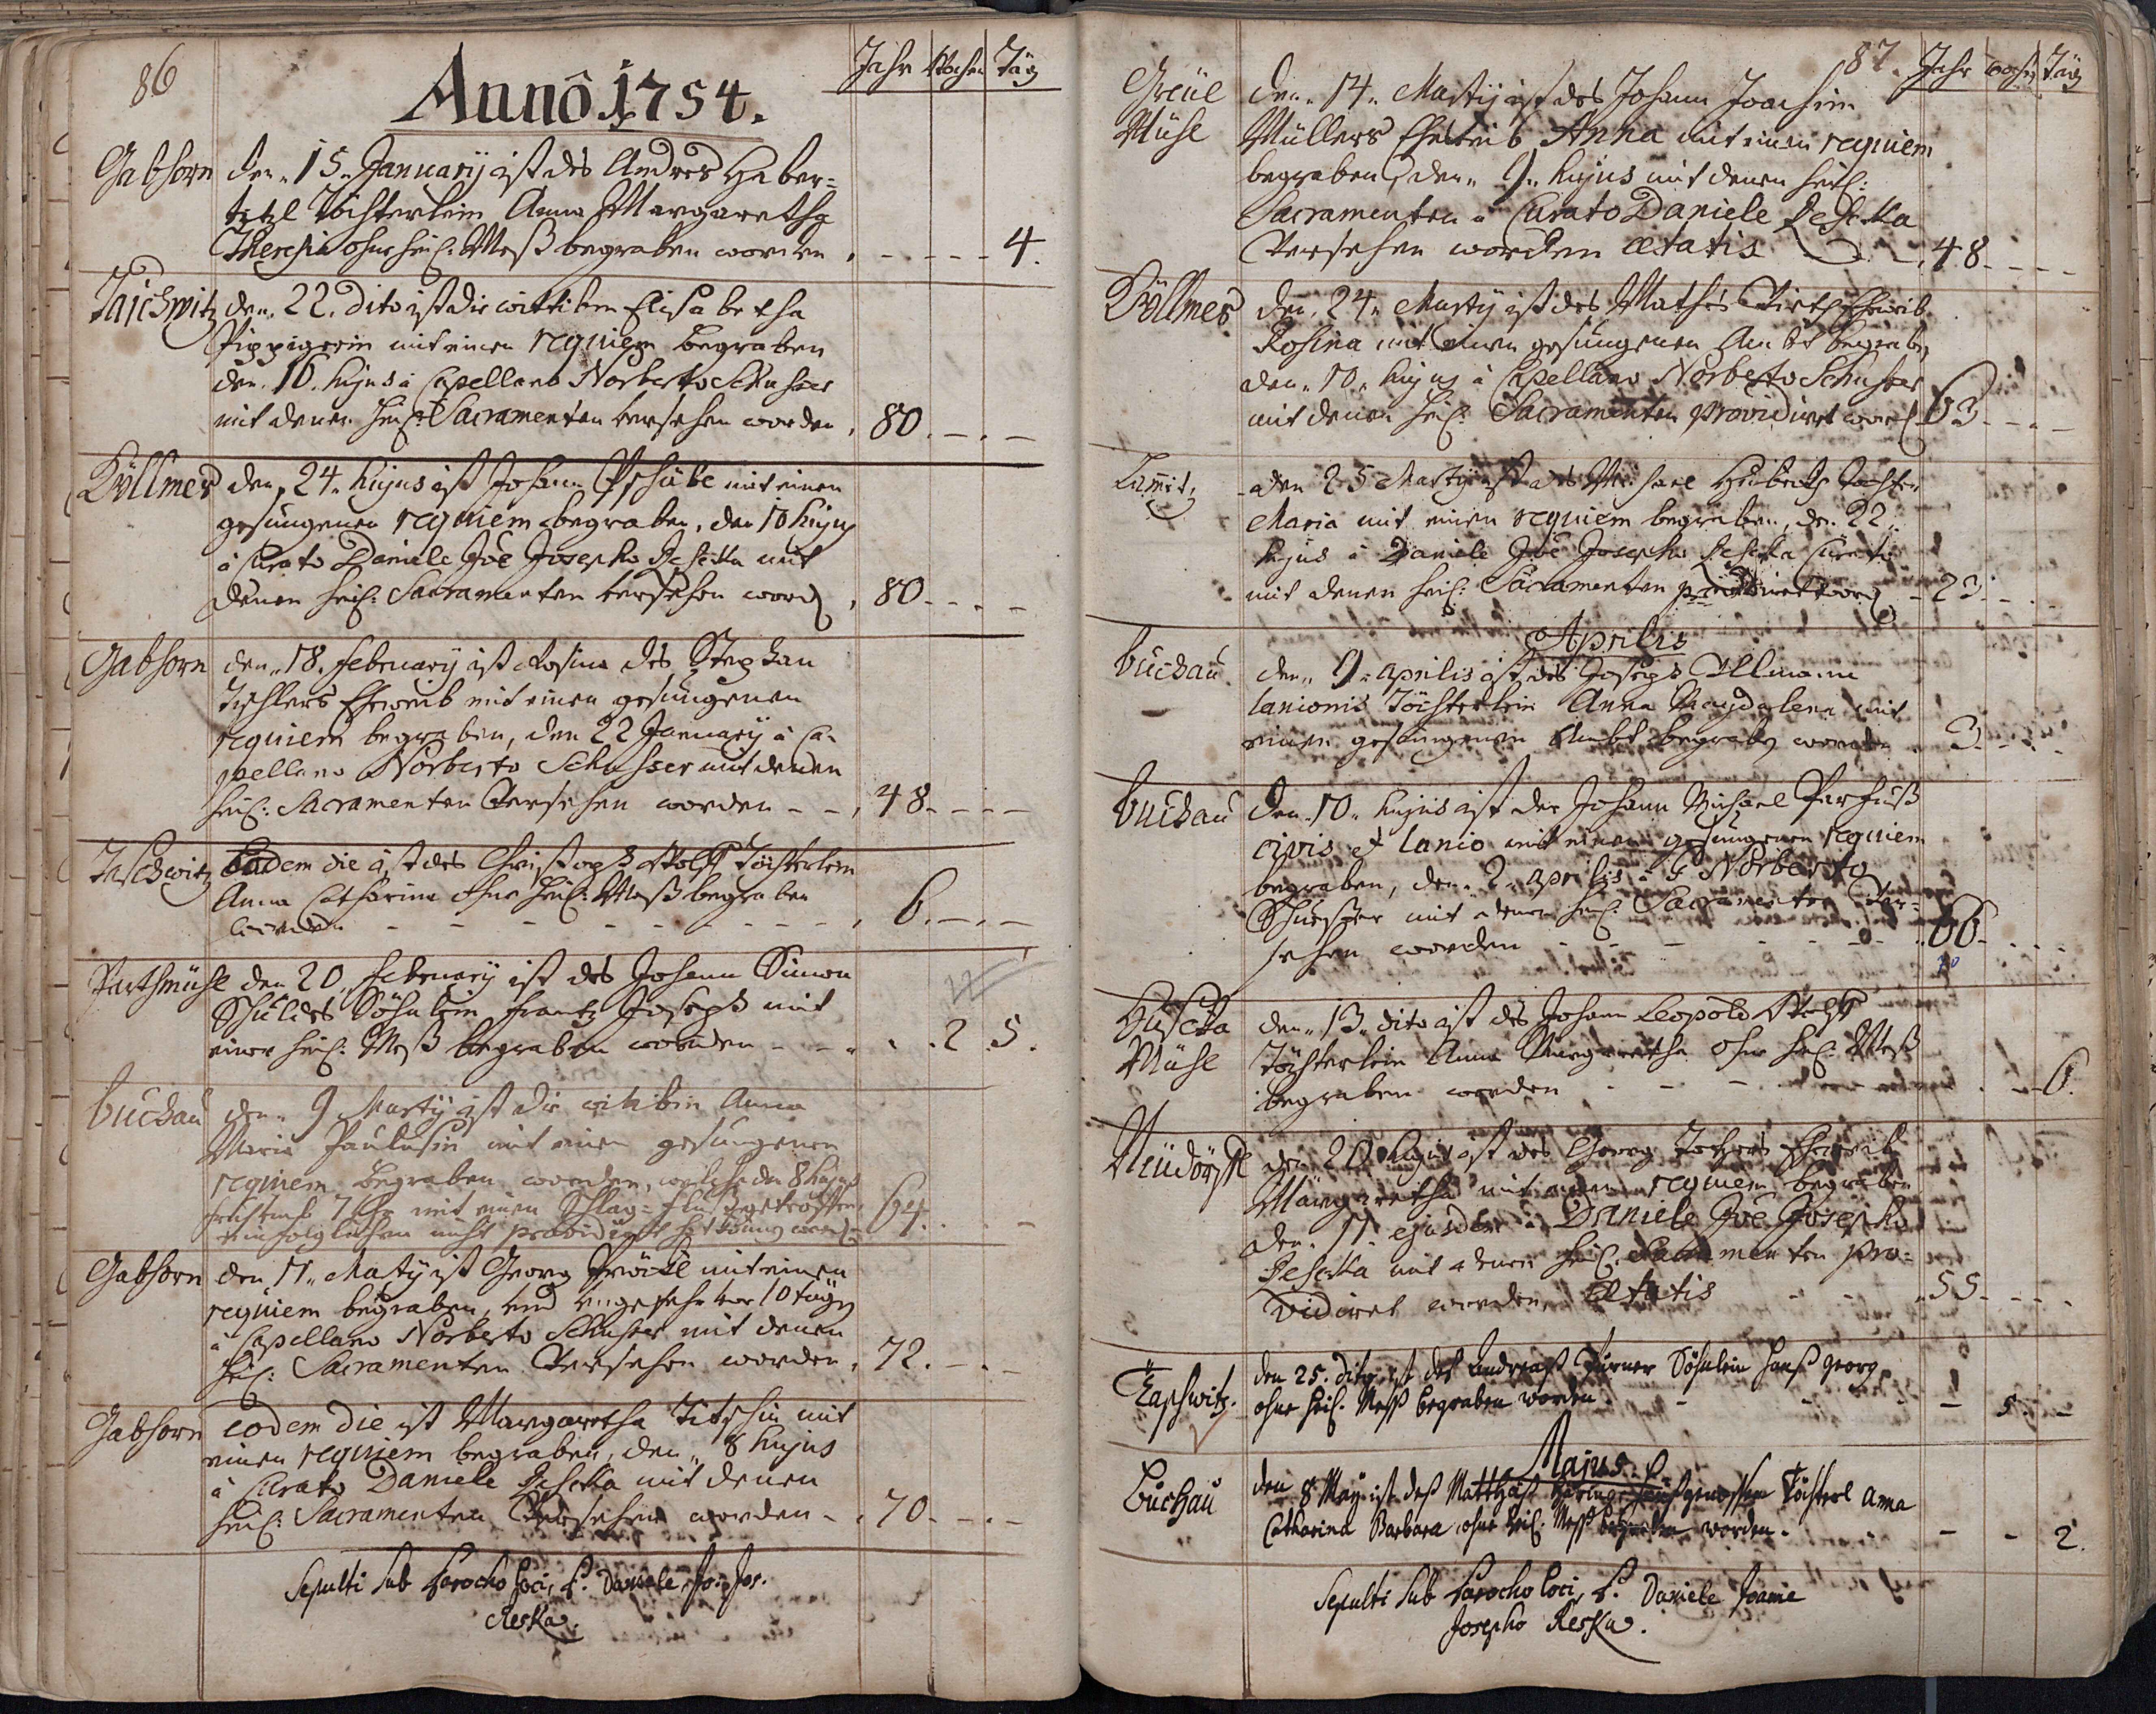 86
Jahr Wochen Täg
Anno 1754.
Gabhorn den 15. Januarij ist des Andres Haber=
titzl Töchterlein Anna Margaretha
Theresia ohne heil: Meß begraben worden - - - - 4.
Taschwitz den 22. dito ist die wittiben Elisabetha
mit einen requiem begraben
den 16. hujus à Capellano Norberto Schuster
mit denen heil: Sacramenten versehen worden, 80. - . -
Döllmes den 24. hujus ist Johann mit einen
gesungenen requiem begraben, den 10 hujus
à Curato Daniele Joe Josepho Reschka mit
denen heil: Sacramenten versehen word, 80. - . -
Gabhorn den 18. February ist Rosina des Stephan
Tischlers Eheweib mit einen gesungenen
requiem begraben, den 22 January à Ca-
pellano Norberto Schuster mit denen
heil: Sacramenten versehen worden - -, 48. - . -
Taschwitz Eodem die ist des Christoph Wolff Töchterlein
Anna Catharina ohne heil: Meß begraben
worden - - - - - - - -, 6. - . -
den 20. February ist des Johann Simon
Söhnlein Frantz Joseph mit
einer heil: Meß begraben worden - - . . 2. 5.
Buchau den 9 Martij ist die wittibin Anna
Maria mit einen gesungenen
requiem begraben worden, welche den 8 hujus
7 Uhr mit einen Schlag=fluß getroffen
nicht providiret word 64. - . -
Gabhorn den 11. Martij ist Georg mit einen
requiem begraben, und ungefehr vor 10 tägen
à Capellano Norberto Schuster mit denen
heil: Sacramenten versehen worden, 72. - . -
Gabhorn eodem die ist Margaretha mit
einen requiem begraben, den 8 hujus
à Curato Daniele Reschka mit denen
heil: Sacramenten versehen worden - . 70. - . -
Sepulti sub Parocho loci, P. Daniele Jo: Jos.
Reska.
87. Jahr Woch Täg
Mühl den 14. Martij ist des Johann Joachim
Müllers Eheweib Anna mit einen requiem
begraben, den 9. hujus mit denen heil:
Sacramenten à Curato Daniele Reschka
versehen worden ætatis - , 48 - - - -
Döllmes den 24. Martij ist des Mathes Eheweib
Rosina mit einen gesungenen Ambt begraben
den 10. hujus à Capellano Norberto Schuster
mit denen heil: Sacramenten providiret word 63 - - -
den 25 Martij ist des Michael tochter
Maria mit einen requiem begraben, den 22.
hujus à Daniele Joe Josepho Reschka Curato
mit denen heil: Sacramenten providiret word - 23. - -
Aprilis
Buchau den 9. Aprilis ist des Joseph Ullmann
lanionis Töchterlein Anna Magdalena mit
einen gesungenen Ambt begraben worden - 3. - -
Buchau den 10. hujus ist der Johann Michael
civis et lanio mit einen gesungenen requiem
begraben, den 2. aprilis à P. Norberto
Schuster mit denen heil: Sacramenten ver=
sehen worden - - - - - 66. - -
Mühl den 13. dito ist des Johann Leopold Wolff
Töchterlein Anna Margaretha ohne heil: Meß
begraben worden - - - - - 6.
Neudörfl den 20 hujus ist des Georg Eheweib
Margaretha mit einen requiem begraben
den 11. ejusdem à Daniele Joe Josepho
Reschka mit denen heil: Sacramenten pro=
vidiret worden ætatis - - 55. - -
Taschwitz. den 25. dito ist des Andreas Turner Söhnlein Hanß Georg
ohne heil. Meß begraben worden. - - - 5. -
Majus.
Buchau den 8 May ist deß Matthäß Töchterl Anna
Catharina Barbara ohne heil: Meß begraben worden. - - 2.
Sepulti sub Parocho loci, P. Daniele Joanne
Josepho Reska.